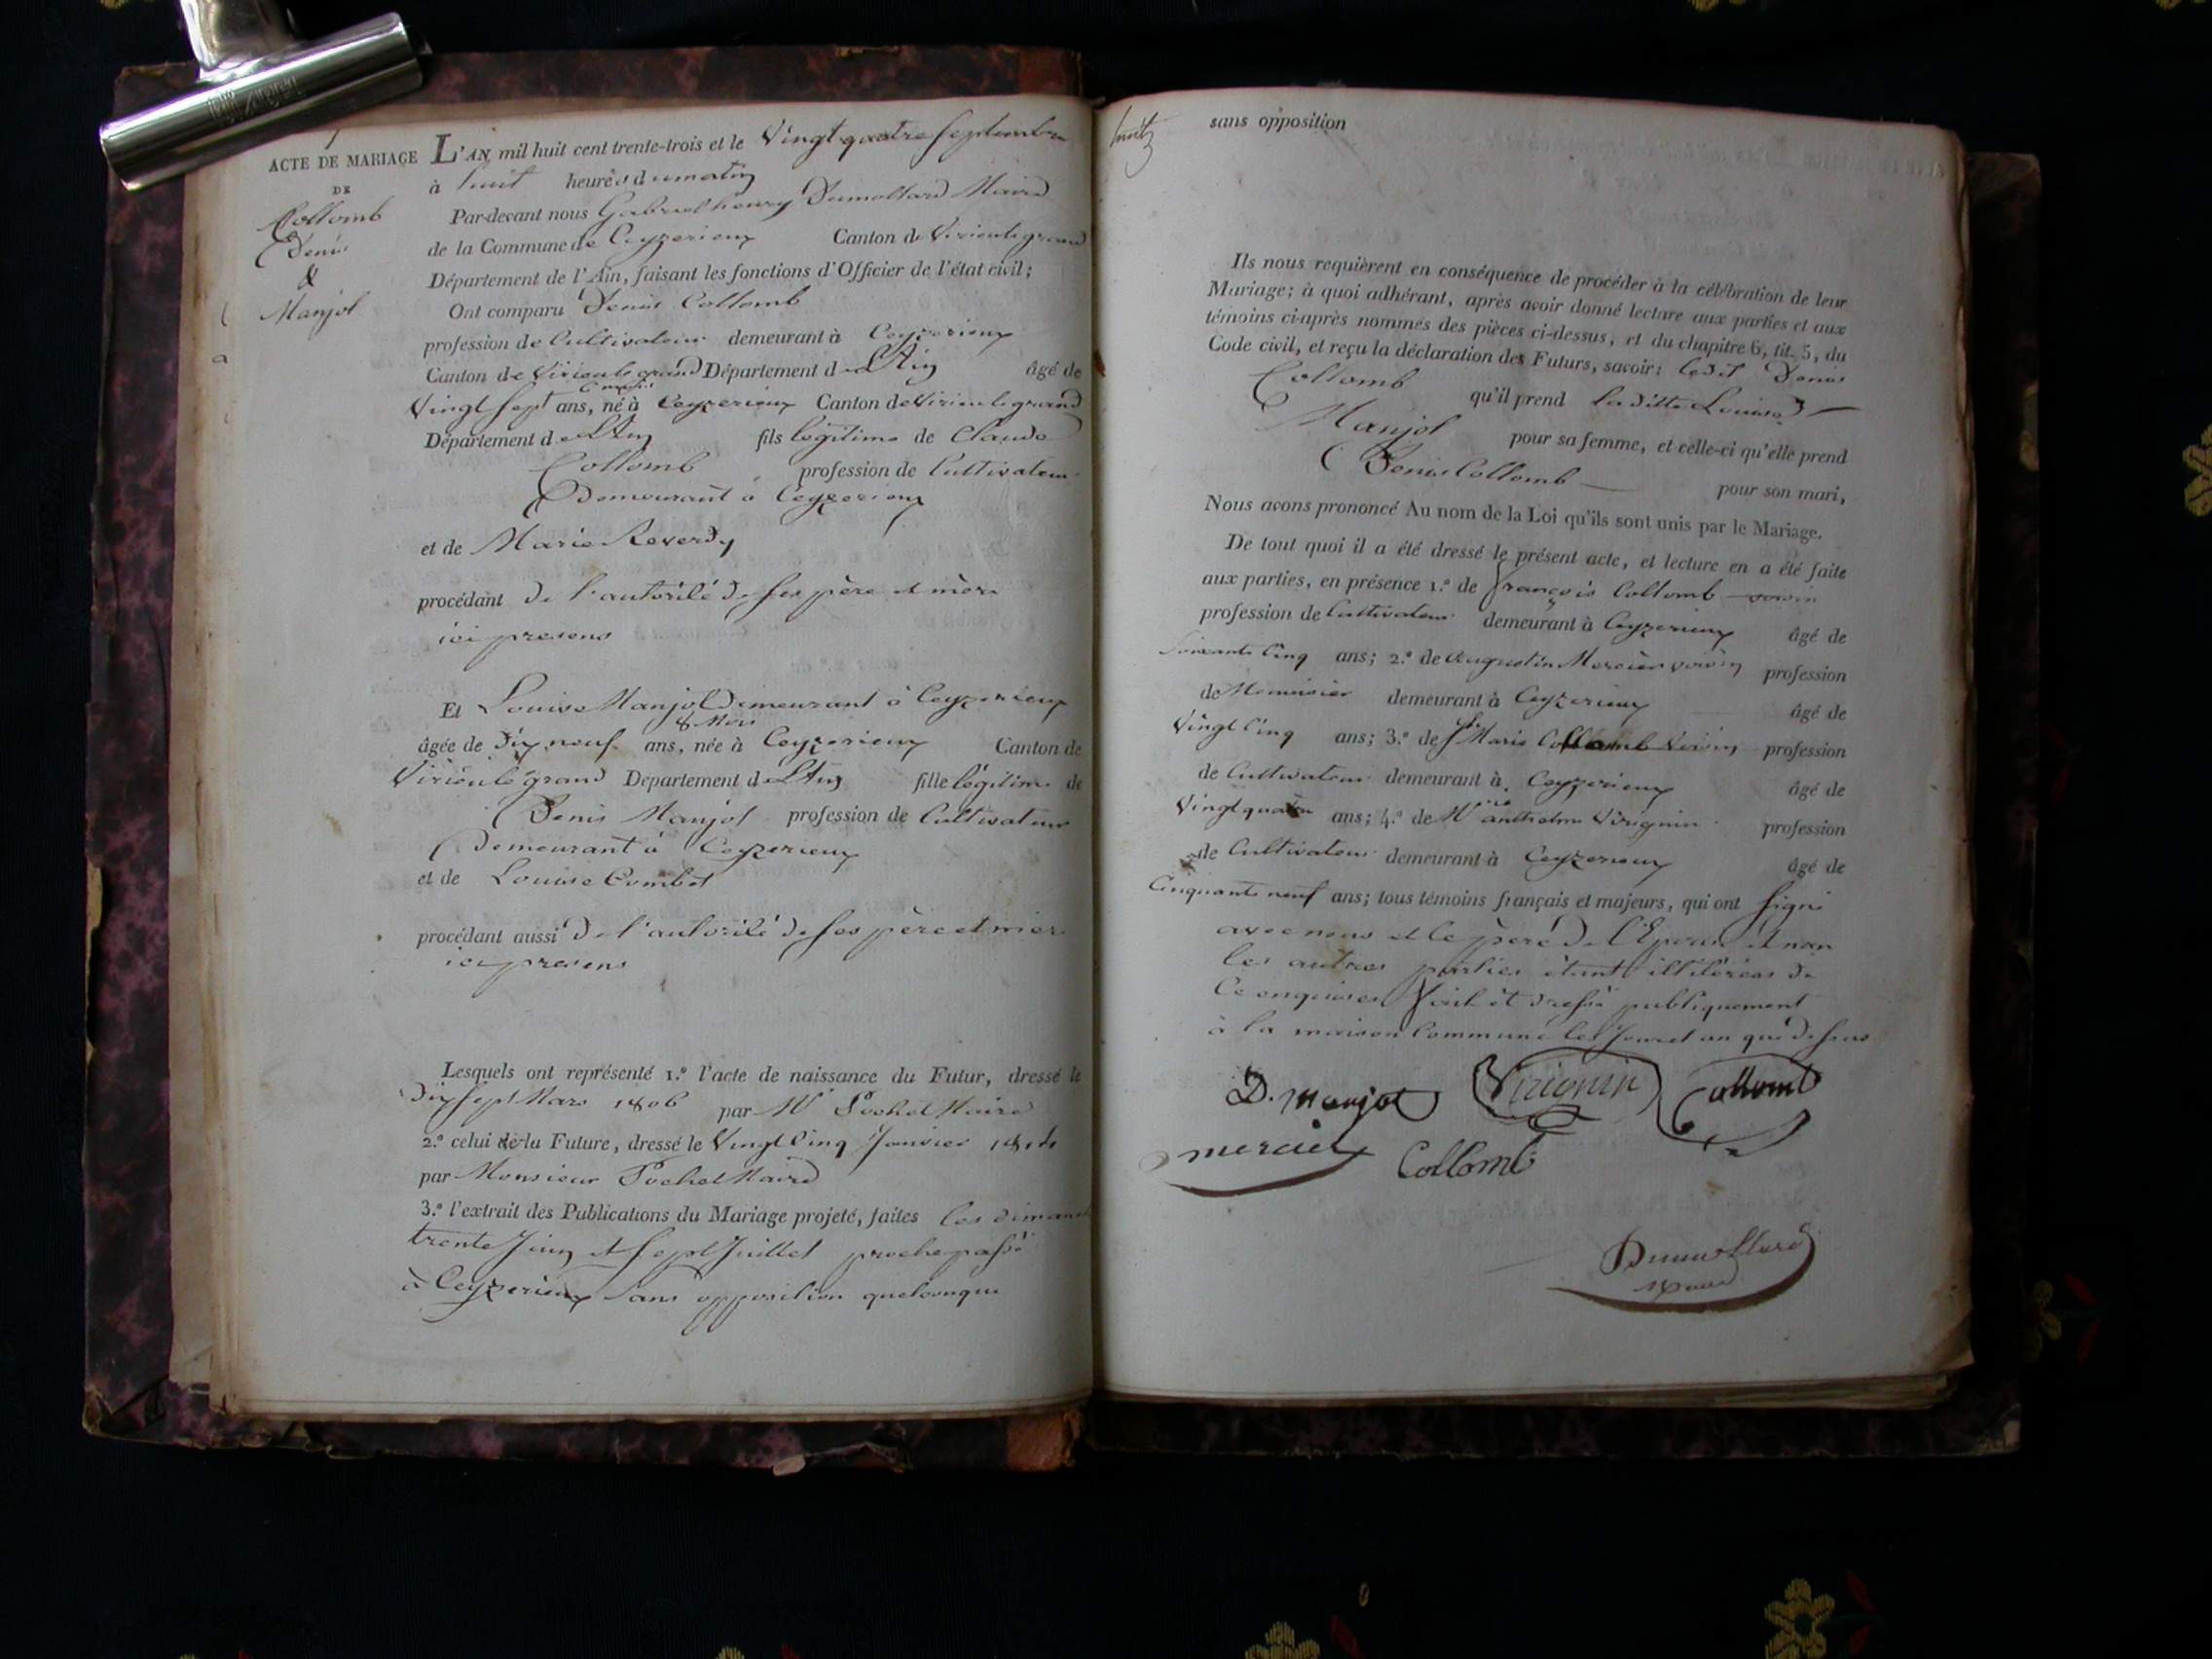 ACTE DE MARIAGE
DE
Collomb
Denis
&
Manjot
L'AN mil huit cent trente-trois et le Vingt quatre Septembre
à huit heures du matin
Par-devant nous Gabriel henry Dumollard Maire
de la Commune de Ceyzerieux Canton de Virieu le grand
Département de l'Ain, faisant les fonctions d'Officier de l'état civil;
Ont comparu Denis Collomb
profession de Cultivateur demeurant à Ceyzerieux
Canton de Virieu le grand Département de L'Ain âgé de
Vingt Sept ans, né à Ceyzerieux Canton de Virieu le grand
Département de L'Ain fils légitime de Claude
Collomb profession de Cultivateur
Demeurant à Ceyzerieux
et de Marie Reverdy
procédant de l'autorité de ses père et mère
ici presens
Et Louise Manjot Demeurant à Ceyzerieux
8 Mois
âgée de Dix neuf ans, née à Ceyzerieux Canton de
Virieu le grand Departement de L'Ain fille légitime de
Denis Manjot profession de Cultivateur
Demeurant à Ceyzerieux
et de Louise Combet
procédant aussi De l'autorité de ses père et mère
ici presens
Lesquels ont représenté 1.º l'acte de naissance du Futur, dressé le
Dix sept Mars 1806 par Mr Pochet Maire
2.º celui de la Future, dressé le Vingt Cinq Janvier 1814
par Monsieur Pochet Maire
3.º l'extrait des Publications du Mariage projeté, faites les dimanc
trente Juin et Sept Juillet proche passé
à Ceyzerieux Sans opposition quelconque
huit
sans opposition
Ils nous requièrent en conséquence de procéder à la célébration de leur
Mariage; à quoi adhérant, après avoir donné lecture aux parties et aux
témoins ci-après nommés des pièces ci-dessus, et du chapitre 6, tit. 5, du
Code civil, et reçu la déclaration des Futurs, savoir: ledit Denis
Collomb qu'il prend la ditte Louise
Manjot pour sa femme, et celle-ci qu'elle prend
Denis Collomb pour son mari,
Nous avons prononcé Au nom de la Loi qu'ils sont unis par le Mariage.
De tout quoi il a été dressé le présent acte, et lecture en a été faite
aux parties, en présence 1.º de françois Collomb voisin
profession de Cultivateur demeurant à Ceyzerieux âgé de
Soixante Cinq ans; 2.º de Augustin Mercier voisin profession
de Menuisier demeurant à Ceyzerieux âgé de
Vingt Cinq ans; 3.º de Marie Collomb Voisin profession
de Cultivateur demeurant à Ceyzerieux âgé de
Vingt quatre ans; 4.º de Mr anthelme Virignin profession
de Cultivateur demeurant à Ceyzerieux âgé de
Cinquante neuf ans; tous témoins français et majeurs, qui ont Signé
avec nous et le père de l'Epouse et non
les autres parties étant illitérées de
Ce enquises fait et dressé publiquement
à la maison Commune les Jour et an que dessus
D. Manjot Virignin Collomb
mercier Collomb
Dumollard
Maire